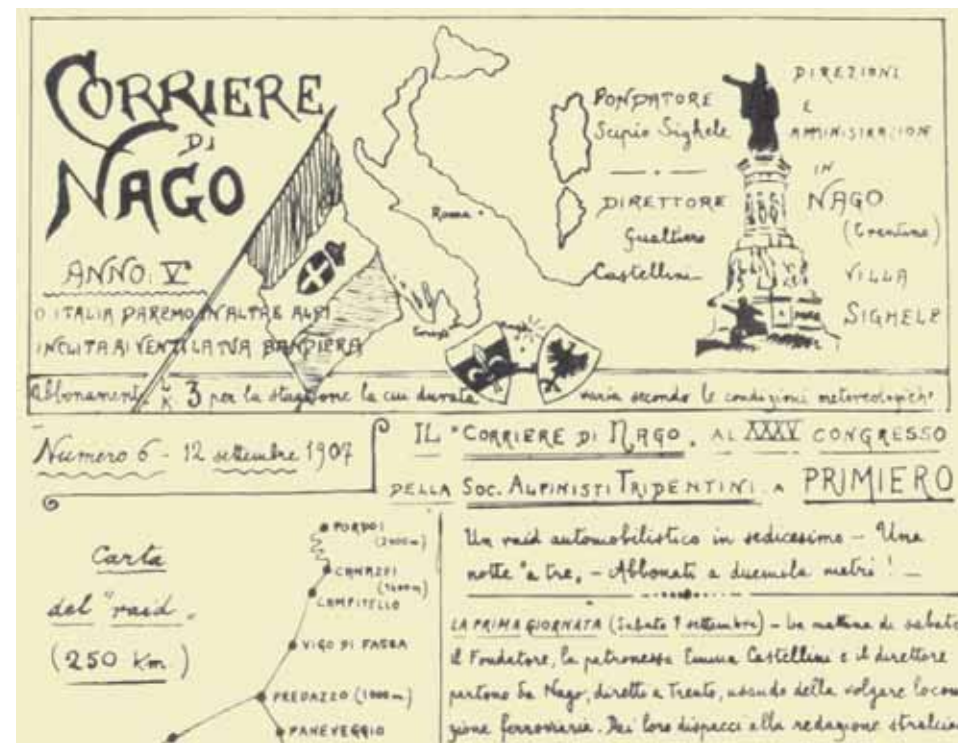 CORRIERE
DI
NAGO
ANNO V°
O ITALIA DAREMO IN ALTRE ALPI
INCLITA AI VENTI LA TUA BANDIERA
Roma
FONDATORE
Scipio Sighele
DIRETTORE
Gualtiero
Castellini
DIREZIONE
E
AMMINISTRAZIONE
IN
NAGO
(Trentino)
VILLA
SIGHELE
Abbonament. 3 per la stagione la cui durata varia secondo le condizioni metereologiche
Numero 6 - 12 settembre 1907
IL "CORRIERE DI NAGO" AL XXXV CONGRESSO
DELLA SOC. ALPINISTI TRIDENTINI A PRIMIERO
Carta
del "raid"
(250 Km.)
PORDOI
CANAZEI
CAMPITELLO
VIGO DI FASSA
PREDAZZO (1000 m)
PANEVEGGIO
Un raid automobilistico in sedicesimo – Una
notte "a tre" – Abbonati a duemila metri! –
LA PRIMA GIORNATA (Sabato 7 settembre) – La mattina di sabato
il Fondatore, la patronessa Emma Castellini e il direttore
partono da Nago, diretti a Trento, usando della volgare locomo
zione ferroviaria. Dai loro dispacci alla redazione stralcia